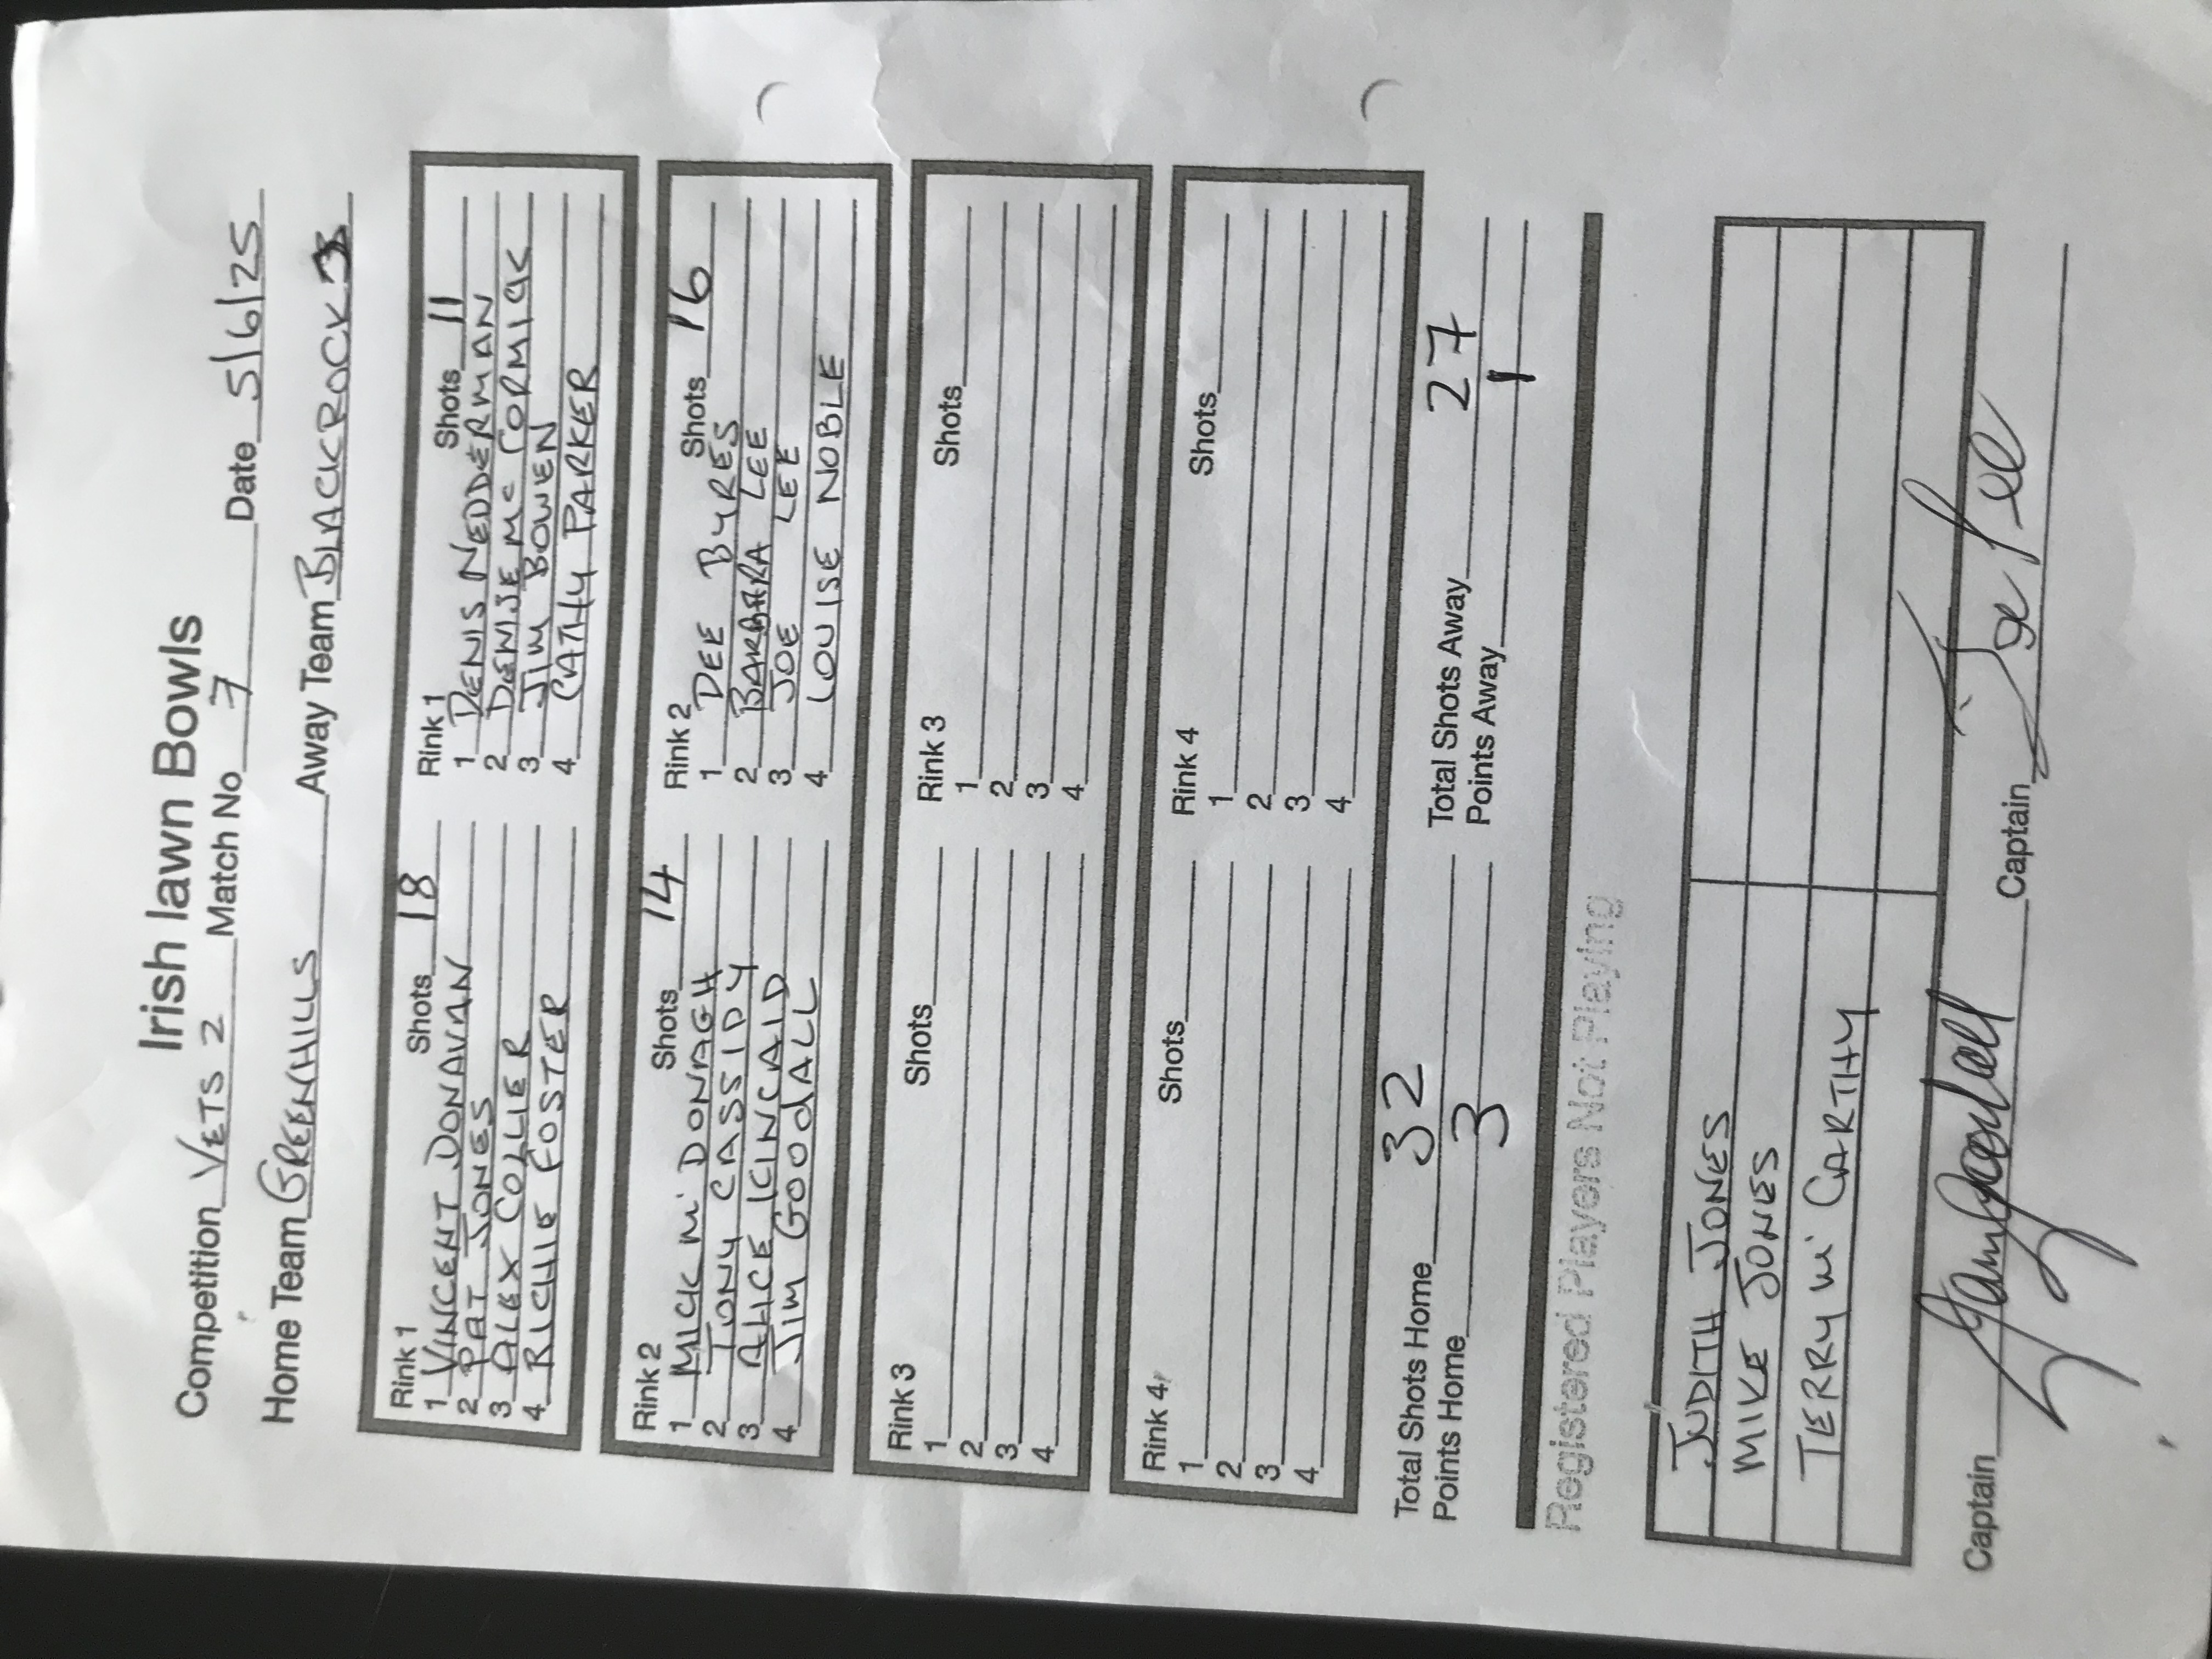 Irish lawn Bowls
Competition VETS 2 Match No 7 Date 5/6/25
Home Team GREENHILLS Away Team BLACKROCK 3
Rink 1 Shots 18
1 VINCENT DONAVAN
2 PAT JONES
3 ALEX COLLIER
4 RICHIE FOSTER
Rink 1 Shots 11
1 DENIS NEDDERMAN
2 DENISE Mc CORMIACK
3 JIM BOWEN
4 CATHY PARKER
Rink 2 Shots 14
1 MICK Mc DONAGH
2 TONY CASSIDY
3 ALICE KINCAID
4 JIM GOODALL
Rink 2 Shots 16
1 DEE BYRES
2 BARBARA LEE
3 JOE LEE
4 LOUISE NOBLE
Rink 3 Shots
1
2
3
4
Rink 3 Shots
1
2
3
4
Rink 4 Shots
1
2
3
4
Rink 4 Shots
1
2
3
4
Total Shots Home 32 Total Shots Away 27
Points Home 3 Points Away 1
Registered Players Not Playing
JUDITH JONES
MIKE JONES
TERRY Mc CARTHY
Captain Captain Joe Lee